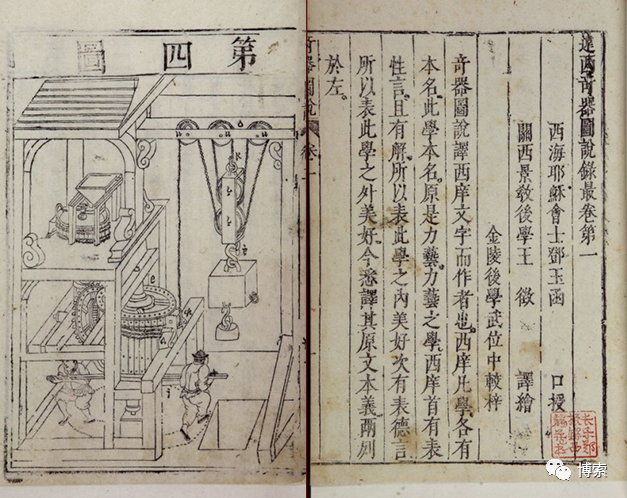 遠西竒器圖說錄最卷第一
西海耶穌會士鄧玉函 口授
關西景教後學王徵 譯繪
金陵後學武位中較梓
竒器圖說譯西庠文字而作者也。西庠凡學各有
本名。此學本名。原是力藝。力藝之學。西庠首有表
性言。且有解。所以表此學之內美好。次有表德言
所以表此學之外美好。今悉譯其原文本義兩列
於左。
竒器圖說 卷一
第四圖
博索